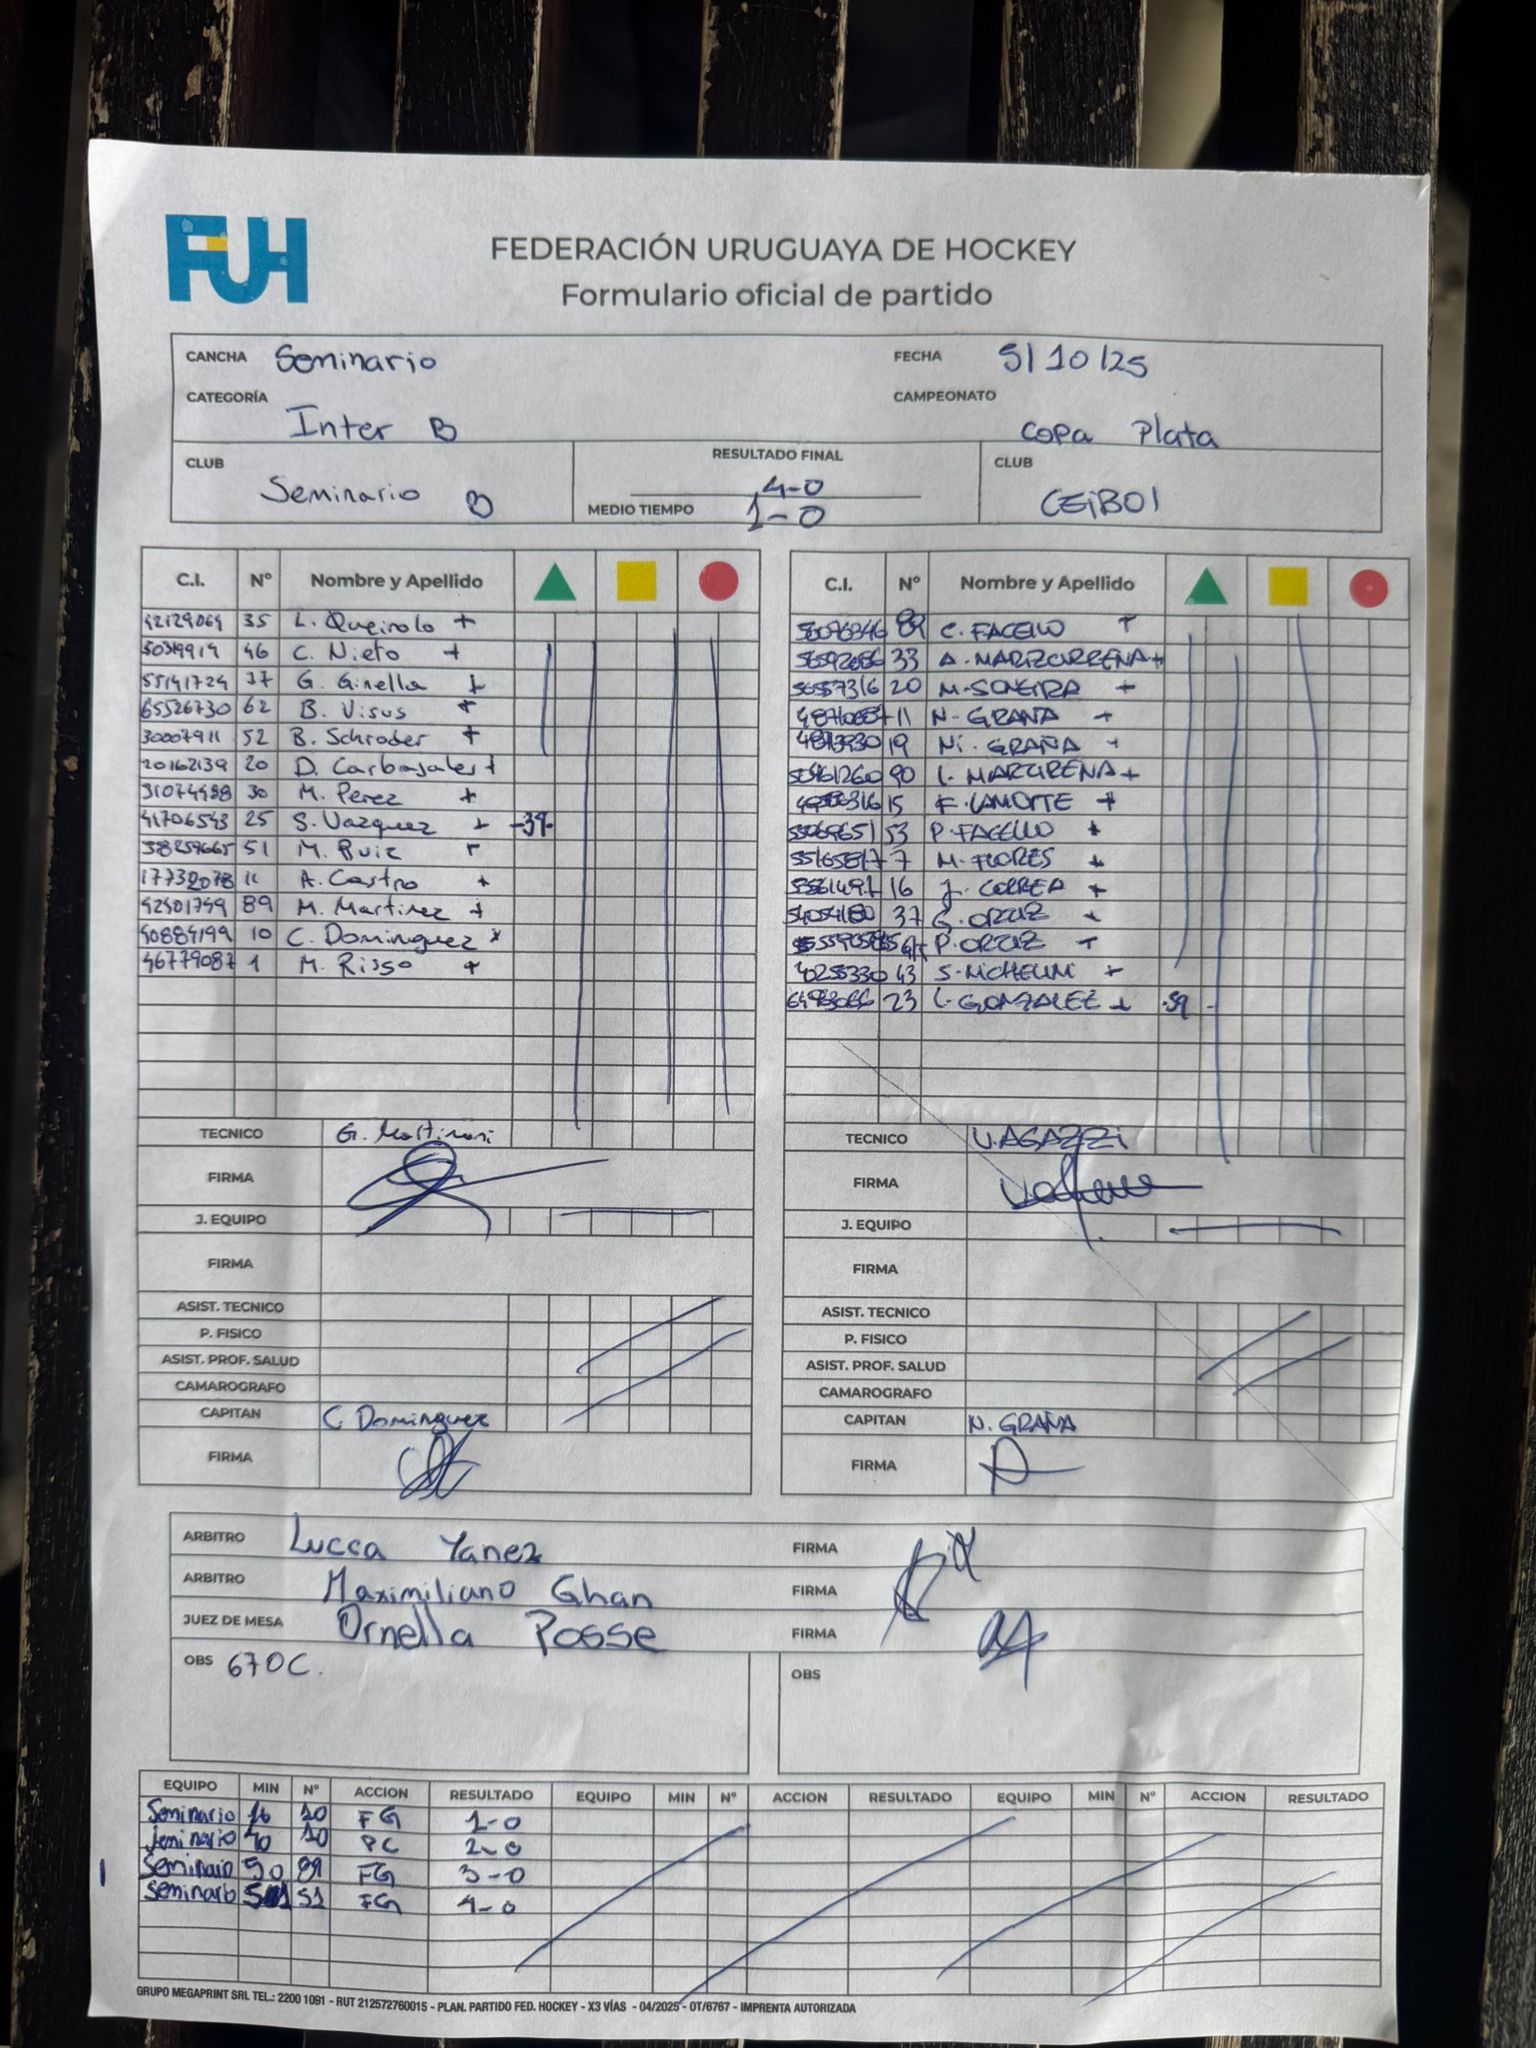 FUH
FEDERACIÓN URUGUAYA DE HOCKEY
Formulario oficial de partido
CANCHA Seminario FECHA 5/10/25
CATEGORÍA Inter B CAMPEONATO Copa Plata
CLUB Seminario B RESULTADO FINAL 4-0 CLUB CEIBOI
MEDIO TIEMPO 1-0
C.I. Nº Nombre y Apellido C.I. Nº Nombre y Apellido
42129064 35 L. Queirolo + 89 C. FACELLO +
46 C. Nieto + 33 +
55141724 37 G. Ginella + 20 M. SONEIRA +
65526730 62 B. Visus + 11 N. GRAÑA +
30007911 52 B. Schroder + 19 Ni. GRAÑA +
20162139 20 D. Carbajales + 90 +
31074498 30 M. Perez + 15 F. LAMOTTE +
41706543 25 S. Vazquez + -39- 53 P. FACELLO +
38259665 51 M. Ruiz + 7 M. FLORES +
17732078 11 A. Castro + 16 J. CORREA +
42501749 89 M. Martinez + 37 G. ORTIZ +
40884199 10 C. Dominguez + P. ORTIZ +
46779087 1 M. Risso + 40255330 43 S. MICHELINI +
23 L. GONZALEZ + -59-
TECNICO G. Martinoni TECNICO V. AGAZZI
FIRMA FIRMA
J. EQUIPO J. EQUIPO
FIRMA FIRMA
ASIST. TECNICO ASIST. TECNICO
P. FISICO P. FISICO
ASIST. PROF. SALUD ASIST. PROF. SALUD
CAMAROGRAFO CAMAROGRAFO
CAPITAN C. Dominguez CAPITAN N. GRAÑA
FIRMA FIRMA
ARBITRO Lucca Yanez FIRMA
ARBITRO Maximiliano Ghan FIRMA
JUEZ DE MESA Ornella Posse FIRMA
OBS 670C. OBS
EQUIPO MIN Nº ACCION RESULTADO EQUIPO MIN Nº ACCION RESULTADO EQUIPO MIN Nº ACCION RESULTADO
Seminario 16 10 FG 1-0
Seminario 40 10 PC 2-0
Seminario 50 89 FG 3-0
Seminario 51 FG 4-0
GRUPO MEGAPRINT SRL TEL.: 2200 1091 - RUT 212572760015 - PLAN. PARTIDO FED. HOCKEY - X3 VÍAS - 04/2025 - OT/6767 - IMPRENTA AUTORIZADA